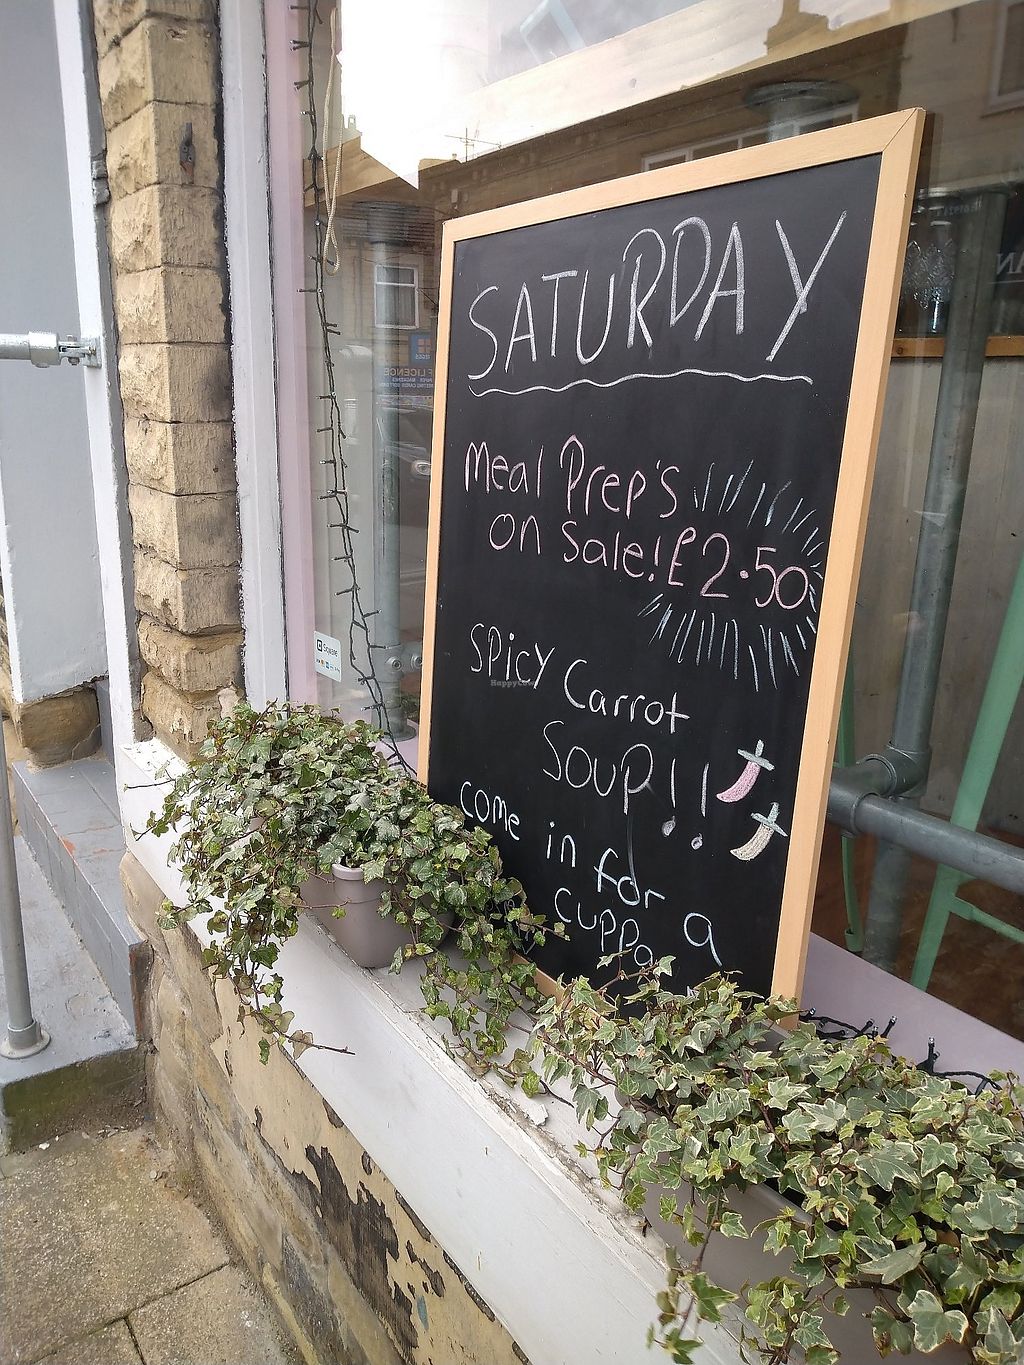 SATURDAY
Meal Prep's
on Sale! £2.50
Spicy Carrot
Soup!!
Come in for a
cuppa
Square
HappyCow
LICENCE